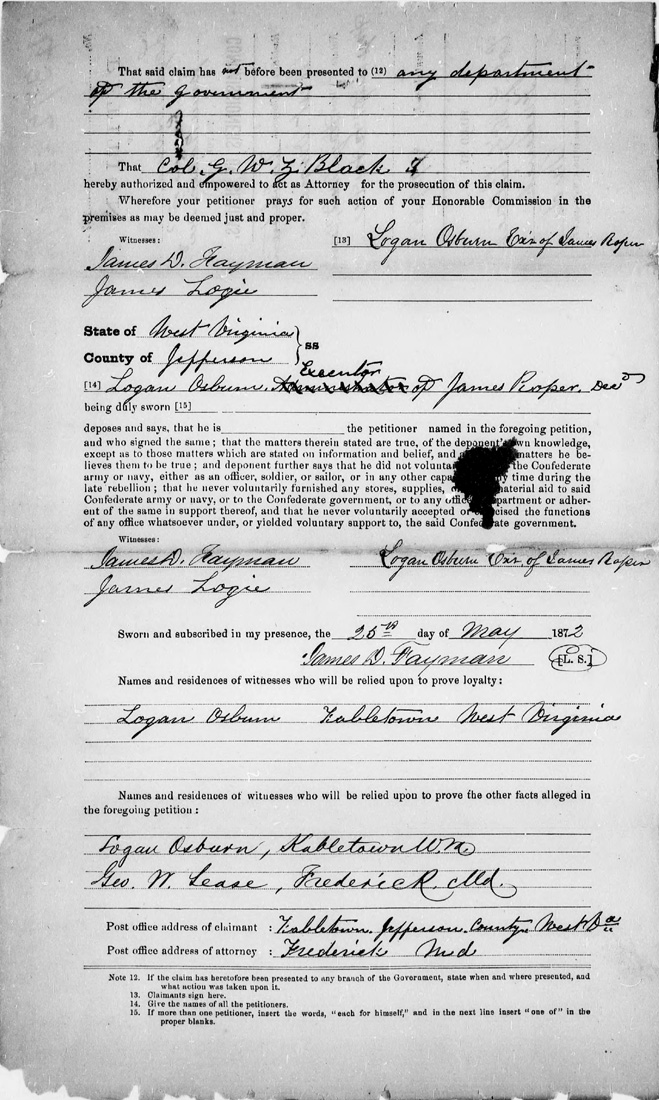 That said claim has not before been presented to (12) any department
of the government
That Col. G. W. Z. Black is
hereby authorized and empowered to act as Attorney for the prosecution of this claim.
Wherefore your petitioner prays for such action of your Honorable Commission in the
premises as may be deemed just and proper.
Witnesses: [13] Logan Osburn Exr. of James Roper
James D. Fayman
James Logie
State of West Virginia
County of Jefferson } ss
Executor
[14] Logan Osburn, Administrator of James Roper. Decd
being duly sworn [15]
deposes and says, that he is the petitioner named in the foregoing petition,
and who signed the same; that the matters therein stated are true, of the deponent's own knowledge,
except as to those matters which are stated on information and belief, and matters he be-
lieves them to be true; and deponent further says that he did not the Confederate
army or navy, either as an officer, soldier, or sailor, or in any other time during the
late rebellion; that he never voluntarily furnished any stores, supplies, material aid to said
Confederate army or navy, or to the Confederate government, or to any department or adher-
ent of the same in support thereof, and that he never voluntarily accepted or exercised the functions
of any office whatsoever under, or yielded voluntary support to, the said Confederate government.
Witnesses:
James D. Fayman Logan Osburn Exr. of James Roper
James Logie
Sworn and subscribed in my presence, the 25th day of May 1872
James D. Fayman [L. S.]
Names and residences of witnesses who will be relied upon to prove loyalty:
Logan Osburn Kabletown West Virginia
Names and residences of witnesses who will be relied upon to prove the other facts alleged in
the foregoing petition:
Logan Osburn, Kabletown W. Va
Geo. W. Lease, Frederick. Md.
Post office address of claimant : Kabletown. Jefferson. County. West Va
Post office address of attorney : Frederick Md
Note 12. If the claim has heretofore been presented to any branch of the Government, state when and where presented, and
what action was taken upon it.
13. Claimants sign here.
14. Give the names of all the petitioners.
15. If more than one petitioner, insert the words, "each for himself," and in the next line insert "one of" in the
proper blanks.